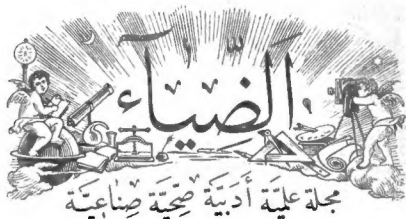 الضِّيَآء
مجلة علميَّة أَدَبيَّة صِحّيَّة صِناعيَّة